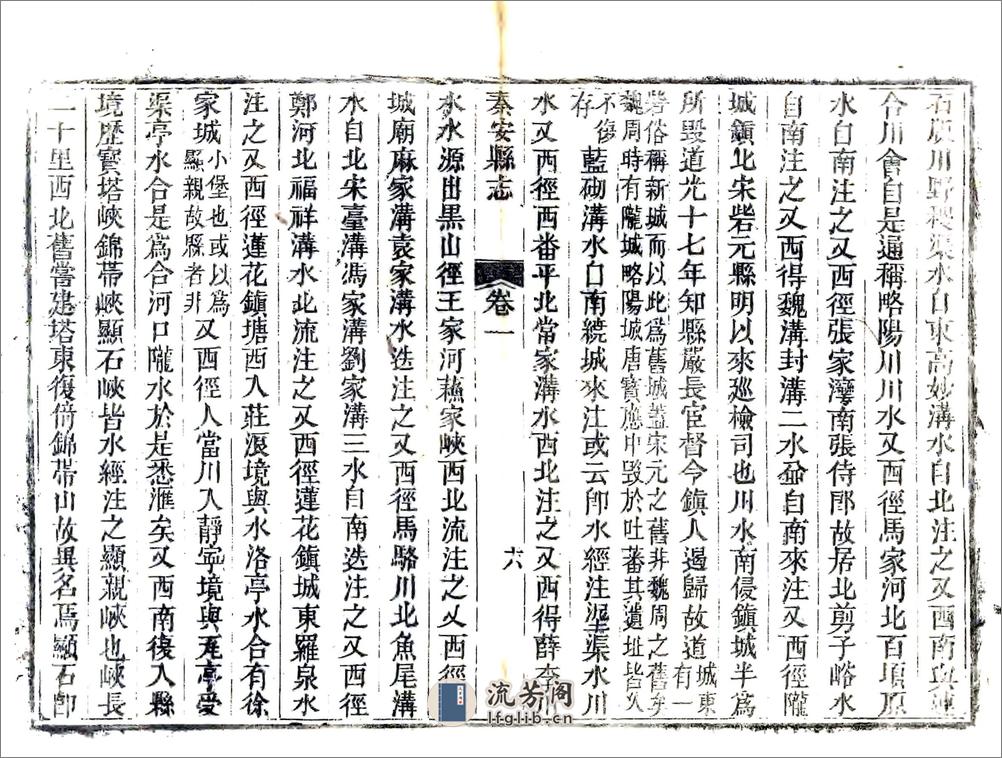 石版川野狸渠水自東高妙溝水自北注之又西南與蓮
合川會自是通稱略陽川川水又西徑馬家河北百頃原
水自南注之又西徑張家灣南張侍郎故居北剪子峪水
自南注之又西得魏溝封溝二水竝自南來注又西徑隴
城鎮北宋砦元縣明以來廵檢司也川水南侵鎮城半爲
所毀道光十七年知縣嚴長宦督令鎮人遏歸故道城東有一
砦俗稱新城而以此爲舊城蓋宋元之舊非魏周之舊矣
魏周時有隴城略陽城唐寳應中毀於吐蕃其遺址皆久
不復存藍砌溝水自南繞城來注或云卽水經注渠水川
水又西徑西番平北常家溝水西北注之又西得薛李川
秦安縣志 卷一 六
水水源出黒山徑王家河蘓家峽西北流注之又西徑
城廟麻家溝袁家溝水迭注之又西徑馬駱川北魚尾溝
水自北宋臺溝馮家溝劉家溝三水自南迭注之又西徑
鄭河北福祥溝水北流注之又西徑蓮花鎮城東羅泉水
注之又西徑蓮花鎮塘西入莊浪境與水洛亭水合有徐
家城小堡也或以爲顯親故縣者非又西徑人當川入靜寜境與瓦亭受
渠亭水合是爲合河口隴水於是悉滙矣又西南復入縣
境歷寳塔峽錦帶峽顯石峽皆水經注之顯親峽也峽長
二十里西北舊嘗建塔東復倚錦帶山故異名焉顯石卽
流芳閣
lfglib.cn